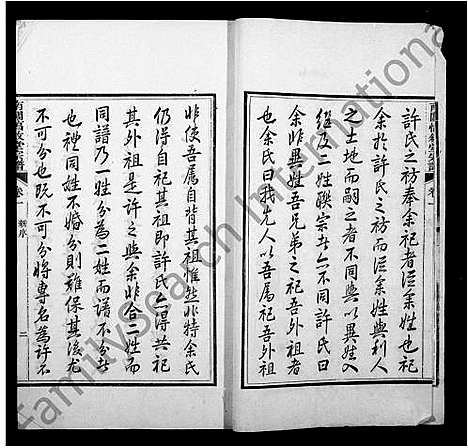 許氏之祊奉余祀者從余姓也祀
余於許氏之祊而從余姓與利人
之土地而嗣之者不同與以異姓入
繼及二姓聯宗者亦不同許氏曰
余非異姓吾兄弟之祀吾外祖者
也余氏曰我先人以吾屬祀吾外祖
非使吾屬自背其祖惟然非特余氏
仍得自祀其祖即許氏亦得共祀
其外祖是許之與余非合二姓而
同譜乃一姓分為二姓而譜不分者
也禮同姓不婚分則難保其後尤
不可分也既不可分將專名為許不
卷一
二
familysearch International